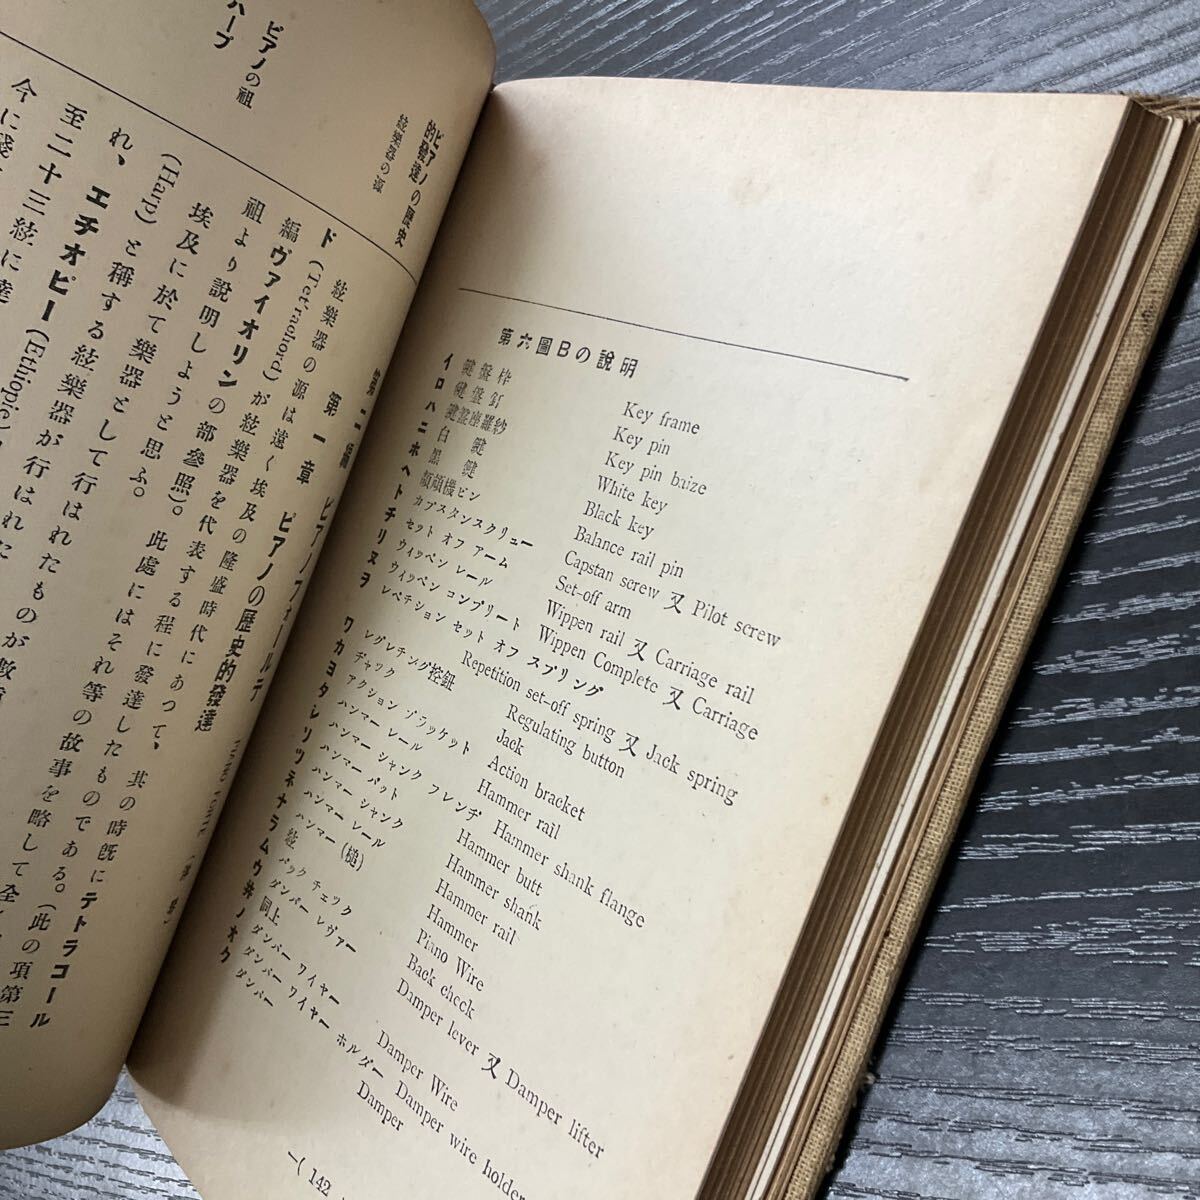 第六圖Bの說明
イ 鍵盤枠 Key frame
ロ 鍵盤釘 Key pin
ハ 鍵盤座羅紗 Key pin baize
ニ 白鍵 White key
ホ 黑鍵 Black key
ヘ Balance rail pin
ト カプスタンスクリュー Capstan screw 又 Pilot screw
チ セット オフ アーム Set-off arm
リ ウィッペン レール Wippen rail 又 Carriage rail
ヌ ウィッペン コンプリート Wippen Complete 又 Carriage
ヲ レペチション セット オフ スプリング Repetition set-off spring 又 Jack spring
ワ レグレチング控鈕 Regulating button
カ ヂャック Jack
ヨ アクション ブラッケット Action bracket
タ ハンマー レール Hammer rail
レ ハンマー シャンク フレンヂ Hammer shank flange
ソ ハンマー バット Hammer butt
ツ ハンマー シャンク Hammer shank
ネ ハンマー レール Hammer rail
ナ ハンマー (槌) Hammer
ラ 絃 Piano Wire
ム バック チェック Back check
ウ ダンパー レヴァー Damper lever 又 Damper lifter
井 同上
ノ ダンパー ワイヤー Damper Wire
オ ダンパー ワイヤー ホルダー Damper wire holder
ク ダンパー Damper
( 142
ピアノの歷史的發達
絃樂器の源
ピアノの祖
ハープ
第二編 ピアノフォールテ
第一章 ピアノの歷史的發達
絃樂器の源は遠く埃及の隆盛時代にあつて、其の時旣にテトラコール
ド(Tetrachord)が絃樂器を代表する程に發達したものである。(此の項第三
編ヴァイオリンの部參照)。此處にはそれ等の故事を略して全く
祖より說明しようと思ふ。
埃及に於て樂器として行はれたものが數
(Harp)と稱する絃樂器が行はれた
れ、エチオピー(Ethiopie)
至二十三絃に達
今に